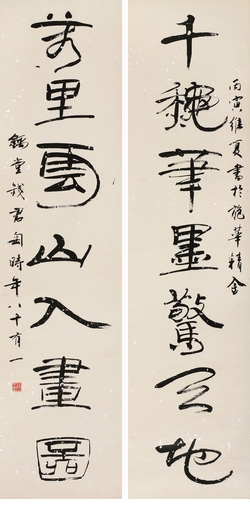 千穐筆墨驚天地
丙寅維夏書於抱華精舍
萬里雲山入畫圖
豫堂錢君匋時年八十有一